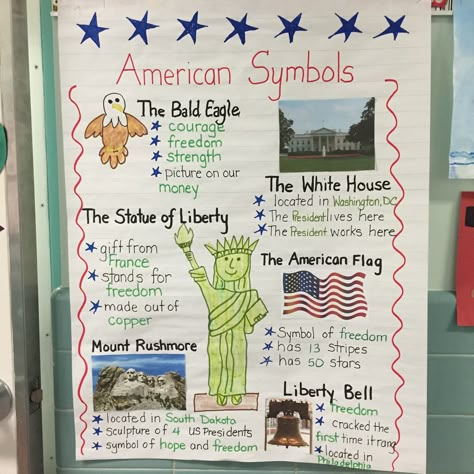 American Symbols
The Bald Eagle
courage
freedom
strength
picture on our
money
The White House
located in Washington, DC
The President lives here
The President works here
The Statue of Liberty
gift from
France
stands for
freedom
made out of
copper
The American Flag
Symbol of freedom
has 13 stripes
has 50 stars
Mount Rushmore
located in South Dakota
sculpture of 4 US Presidents
symbol of hope and freedom
Liberty Bell
freedom
cracked the
first time it rang
located in
Philadelphia